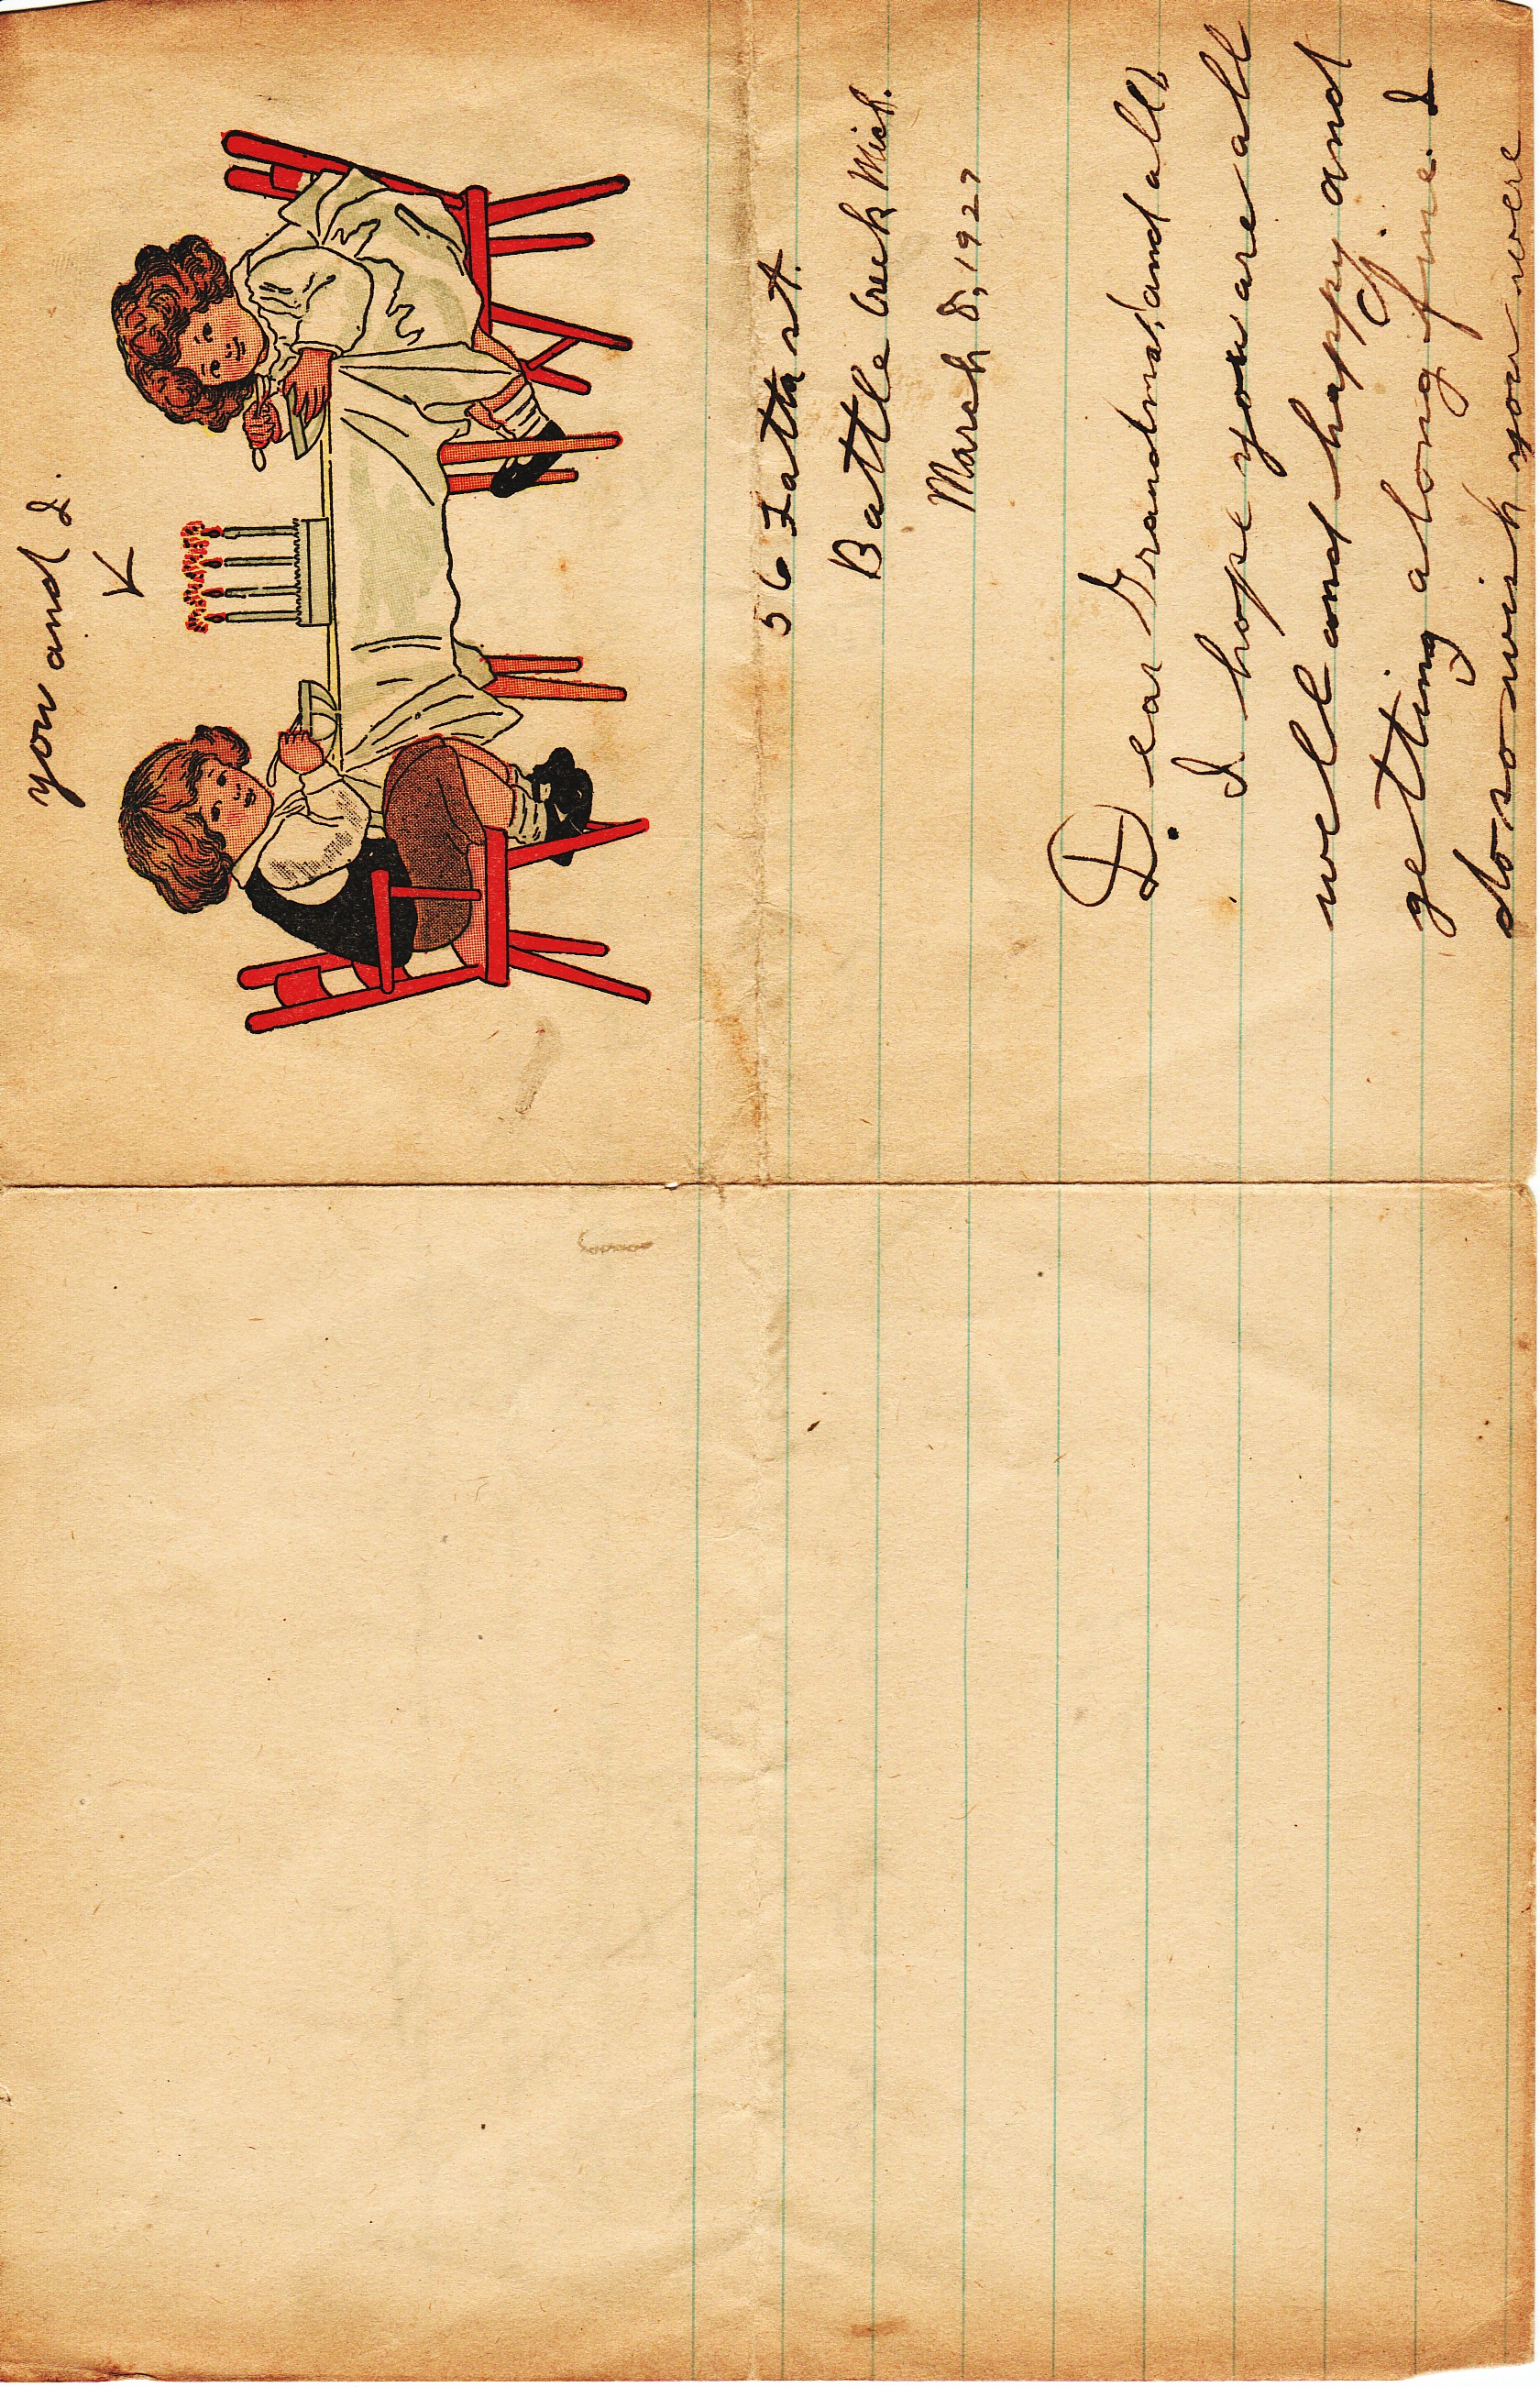 you and I.
56 Latta st.
Battle Creek Mich.
March 8, 1927
Dear Grandma, and all,
I hope you are all
well and happy and
getting along fine. I
do so wish you were